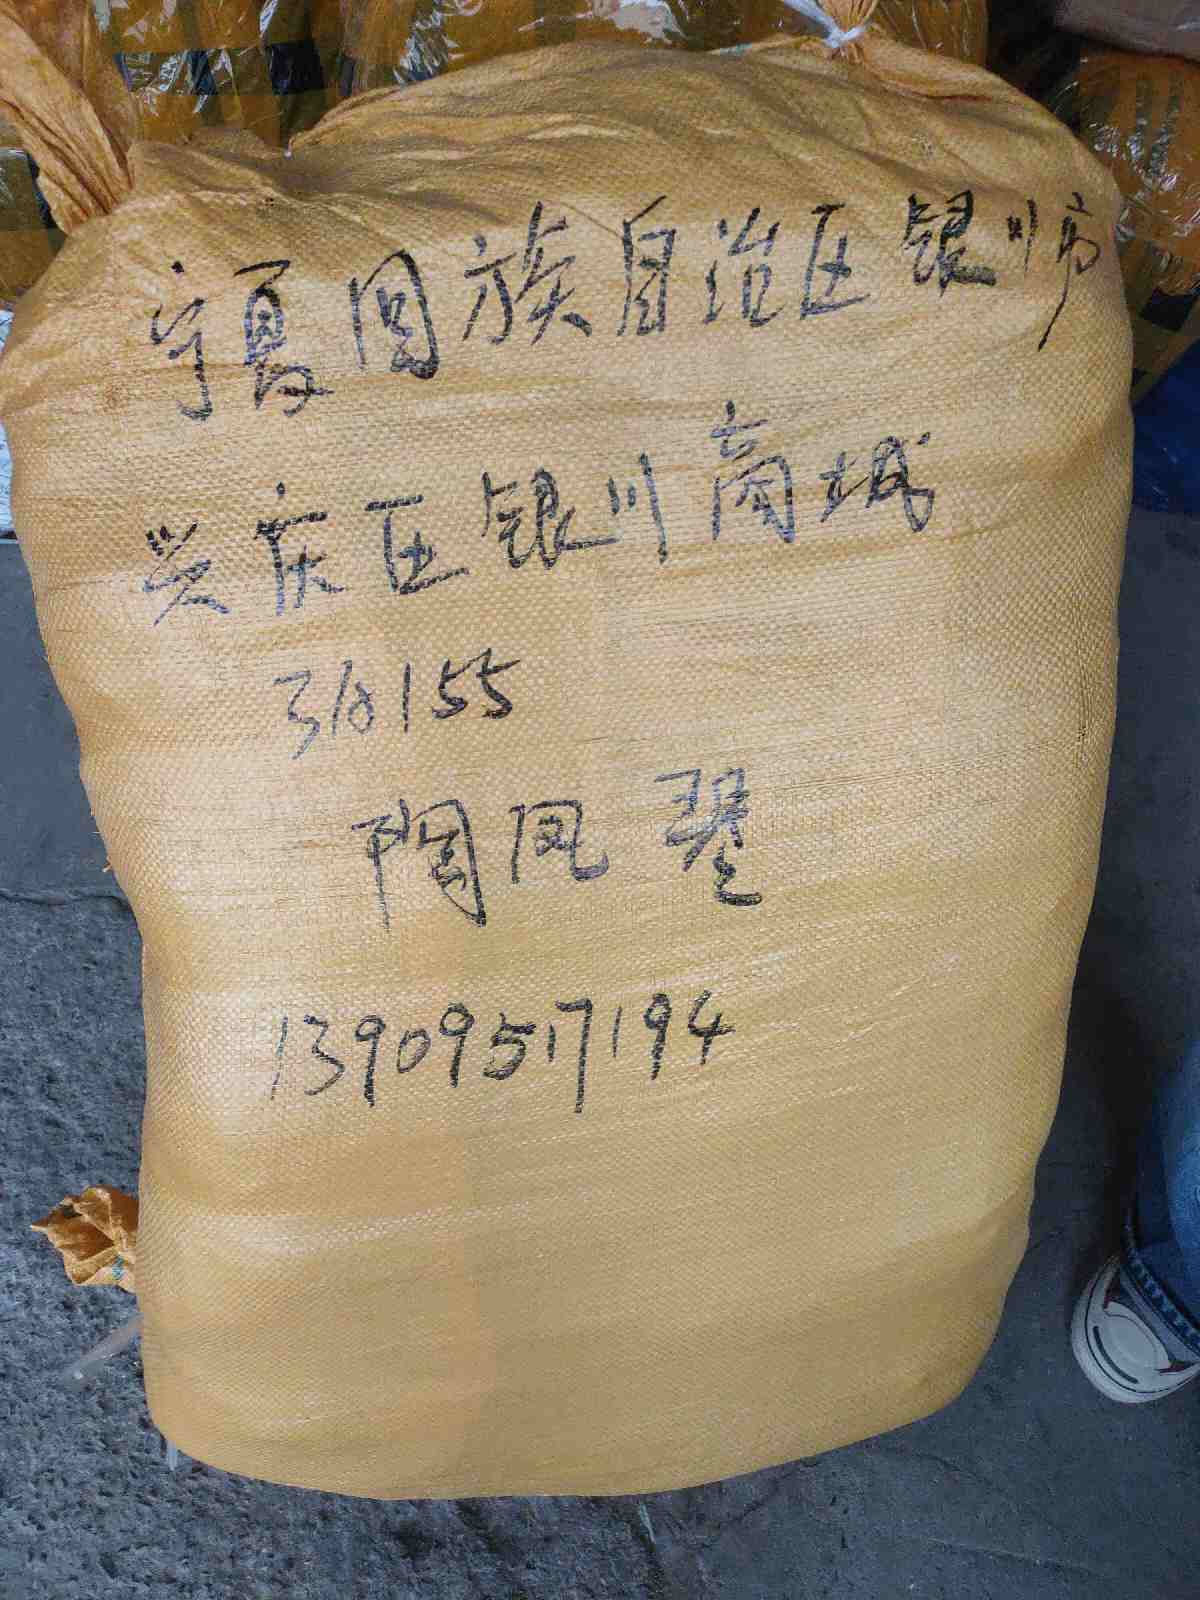 宁夏回族自治区银川市
兴庆区银川商城
陶凤琴
13909517194